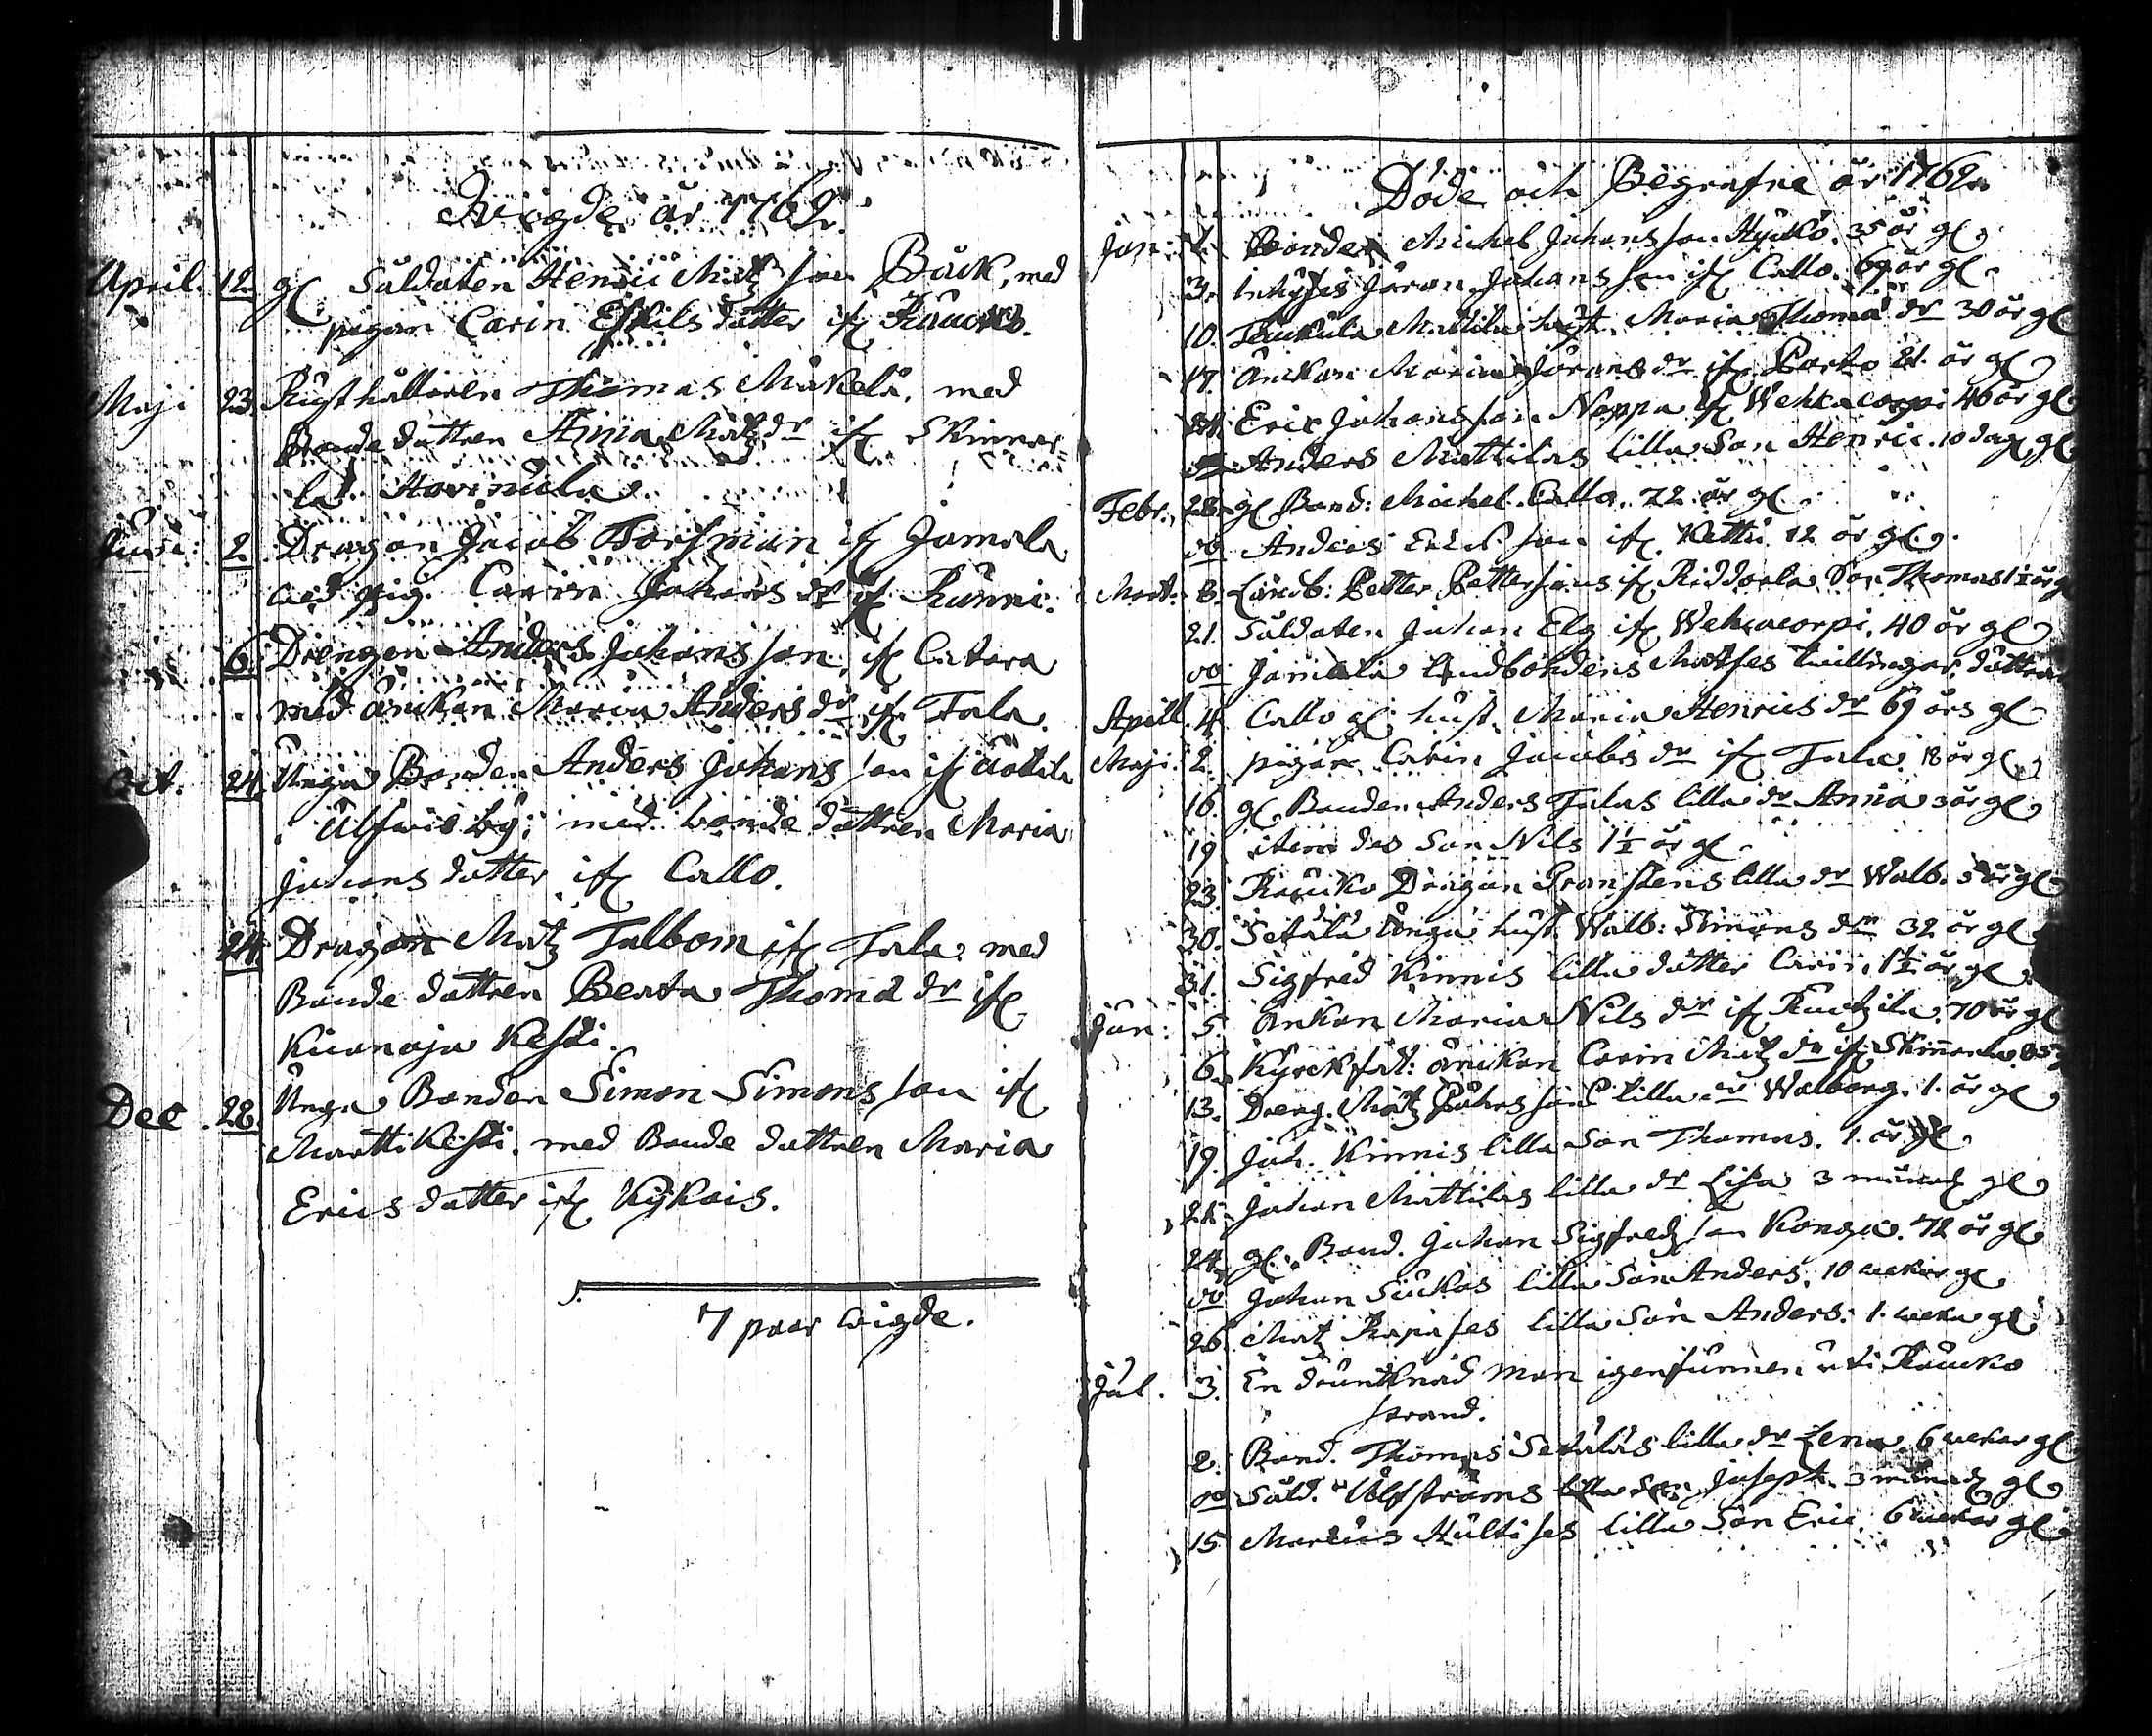 Wigde år 1762.
April. 12. gl Saldaten Henric Matz son Bäck, med
pigan Carin Eskils dotter ifr Kaucko.
Maji 23. Rusthållaren Thomas Mäkelä, med
Bonde dottren Anna Matz dr ifr Skinnar
la Hovinula
Juni: 2 Dragon Jacob Forsman ifr Jamala
med pig. Carin Johans dr ifr Kunni.
6. Drengen Anders Johans son, ifr Catara
med änkan Maria Anders dr ifr Tala.
Oct. 24. Unga Bonden Anders Johans son ifr
Ulfwis by, med bonde dottren Maria
Johans dotter ifr Callo.
24. Dragon Matz Talbom ifr Tala med
Bonde dottren Beata Thoma dr ifr
Kuanoja Kesti.
Dec. 28. Unga Bonden Simon Simons son ifr
Martti Kesti. med Bonde dottren Maria
Erics dotter ifr Kykois.
7 paar wigde.
Döde och Begrafne år 1762.
Jan: Bonden Michel Johans son Hyrkö. 35 år gl
3. Inhyses Jöran Johans son ifr Callo. 69 år gl
10. Mattila hust. Maria Thoma dr 30 år gl
17. Änkan Maria Jörans dr ifr Parko 81. år gl
Eric Johans son Nappa ifr Wehkacorpi 46 år gl
Anders Mattilas lilla Son Henric. 10 dag. gl
Febr. 28. gl Bond: Michel Callo. 72 år gl
do Anders Erics son ifr Kettu 12 år gl
Mart. 8. Landb: Petter Petterssons ifr Riddarla Son Thomas 1 1/2 år gl
21. Saldaten Johan Elg ifr Wehkacorpi. 40 år gl
do Jamala landbondens Matses twillingar, döttrar
Apill. 4. Callo gl hust. Maria Henrics dr 69 års gl
Maji. 2. pigan Carin Jacobs dr ifr Tala. 18 år gl
16. gl Bonden Anders Talas lilla dr Anna 3 år gl
19 item des Son Nils 1 1/2 år gl
23. Kaucko Dragon lilla dr Walb. 5 år gl
30. Setälä Unga hust. Walb: Simons dr 32 år gl
31. Sigfred Kinnis lilla dotter Carin, 1 1/2 år gl
Jun: 5. Änkan Maria Nils dr ifr 70 år gl
6. Kyrck fat: änkan Carin Matz dr ifr Skinnarla
13. Dreng. Matz lilla dr Walborg. 1. år gl
19. Joh. Kinnis lilla Son Thomas. 1. år gl
21. Johan Mattilas lilla dr Lisa 3 månad gl
24. gl. Bond. Johan Sigfredz son Konga. 72 år gl
do Johan Siukos lilla Son Anders. 10 wekor gl
26. Matz Rapases lilla Son Anders. 1. weka gl
Jul. 3. En drunknad man igenfunnen uti Kaucko
strand.
e. Bond. Thomas Setäläs lilla dr Lena. 6 wekor gl
do Sald. Ulfströms lilla Son Joseph. 3 månad gl
15 Marcus Hultises lilla Son Eric. 6 wekor gl